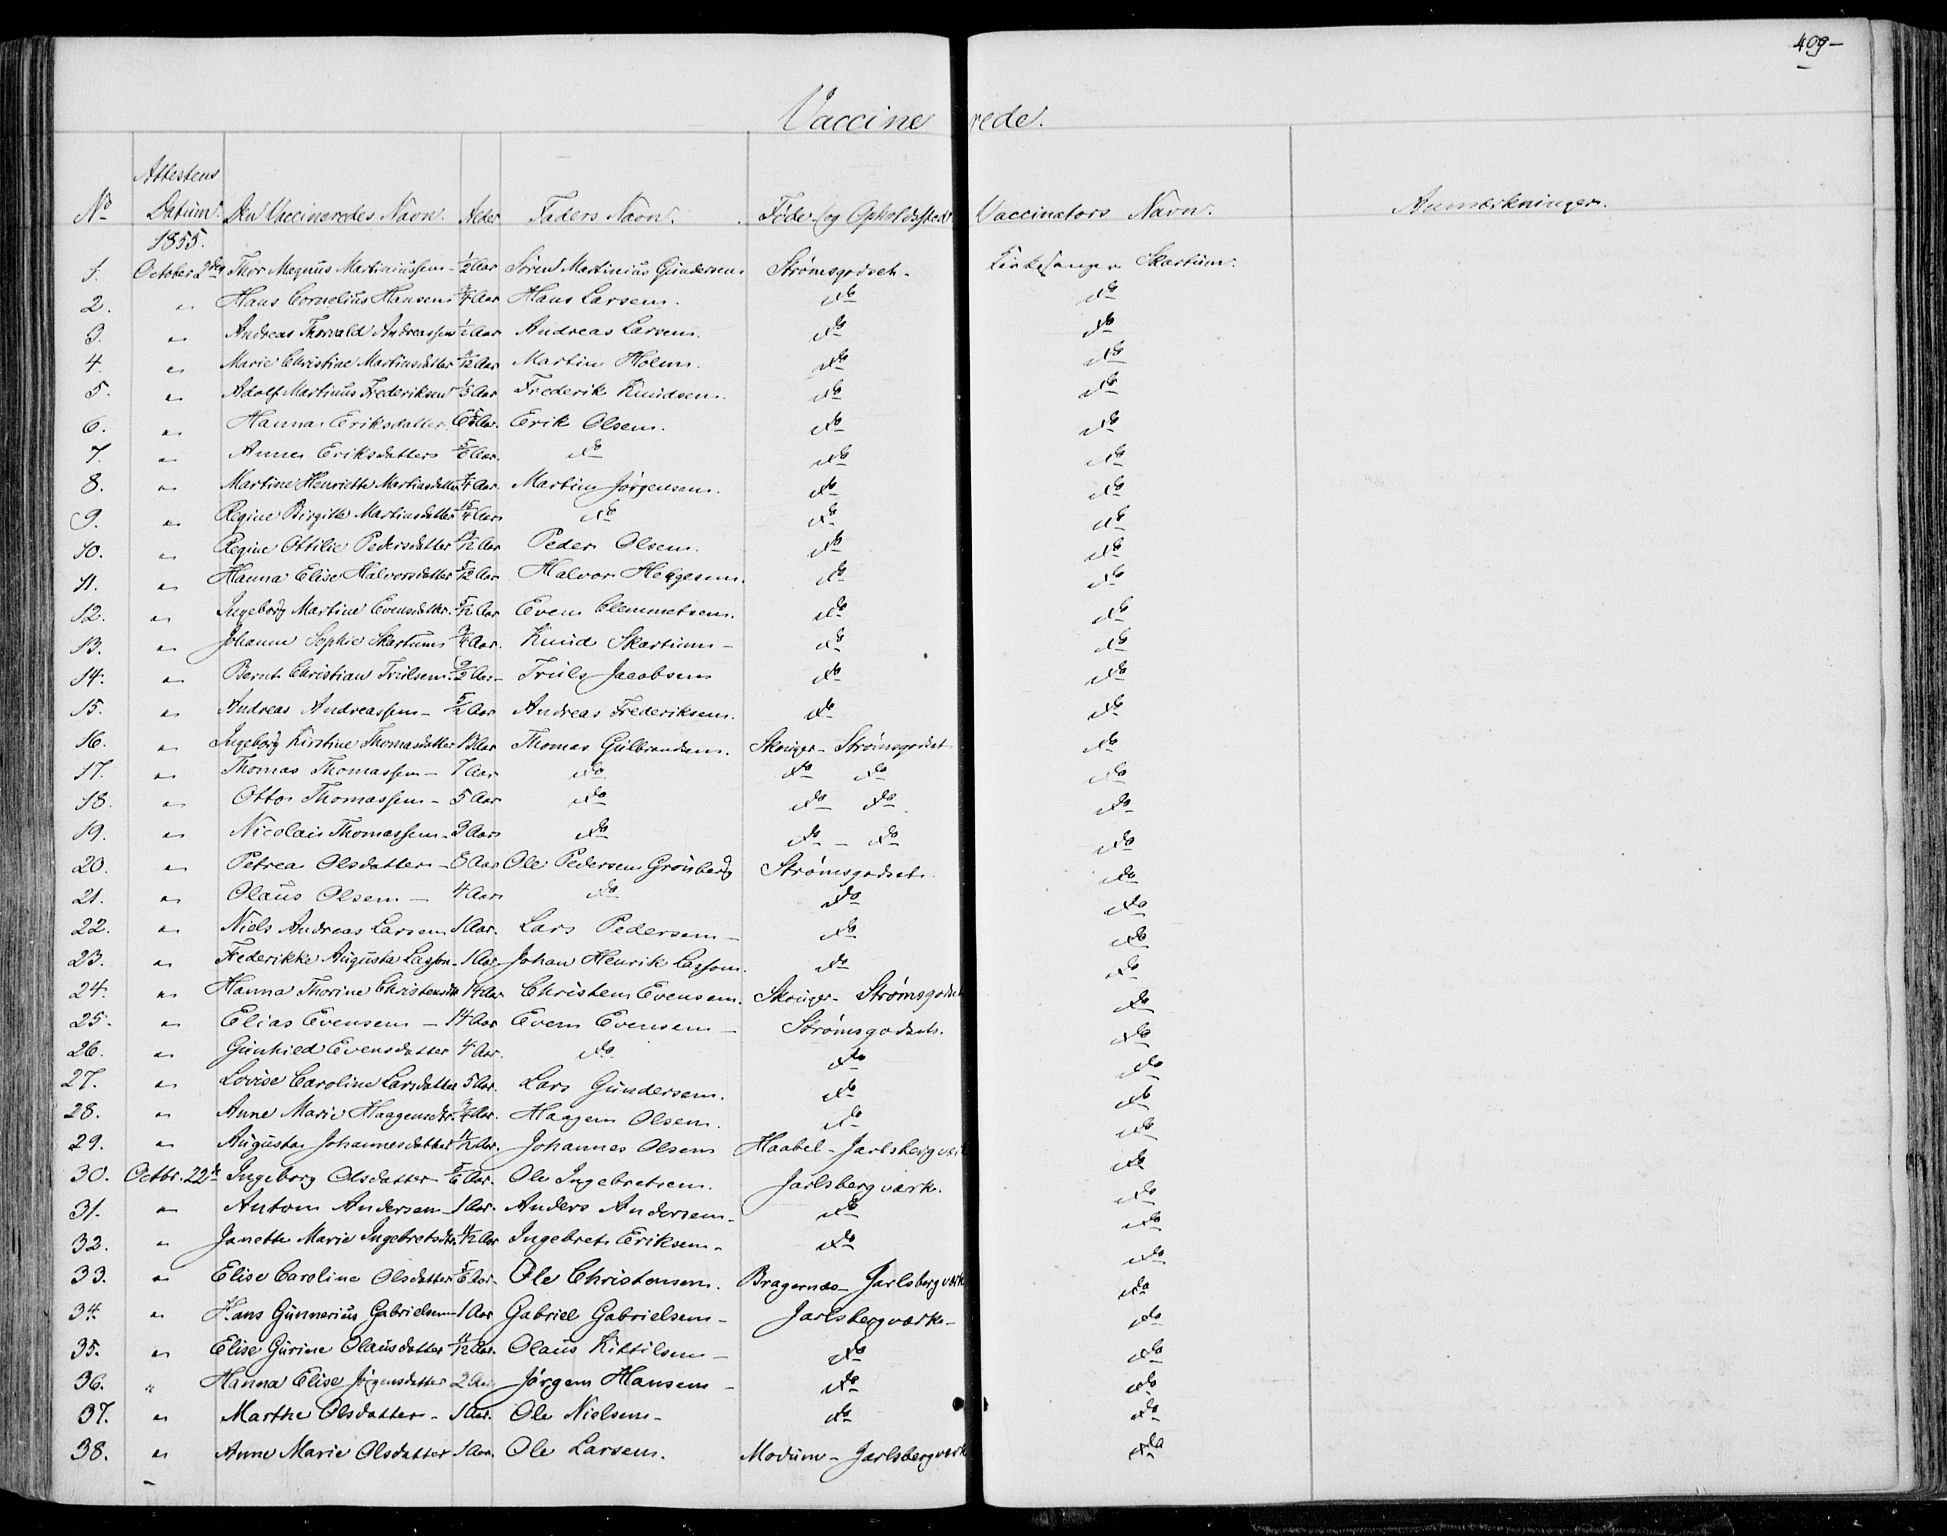 409-
Vaccinerede.
Attestens
No Datum. Den Vaccineredes Navn. Alder Faders Navn. Føde- og Opholdssted Vaccinators Navn. Anmærkninger.
1855.
1. October 2den Thor Magnus Martiniussen - 1/2 Aar Søren Martinius Gundersen Strømsgodset - Kirkesanger Skartum.
2. " Hans Cornelius Hansen 3/4 Aar Hans Larsen. do do
3. " Andreas Thorvald Andreassen 1/2 Aar Andreas Larsen. do do
4. " Marie Christine Martinsdatter Aar Martin Holm. do do
5. " Adolf Martinus Frederiksen 1/3 Aar Frederik Knudsen. do do
6. " Hanna Eriksdatter Aar. Erik Olsen. do do
7. " Anne Eriksdatter 5/6 Aar. do do do
8. " Martine Henriette Martinsdatter Aar. Martin Jørgensen. do do
9. " Regine Birgitte Martinsdatter Aar do do do
10. " Regine Ottilie Pedersdatter Aar Peder Olsen. do do
11. " Hanna Elise Halvorsdatter 5/12 Aar Halvor Helgesen. do do
12. " Ingeborg Martine Evensdatter. Aar Even Clemmetsen. do do
13. " Johanne Sophie Skartum 3/4 Aar. Knud Skartum - do do
14. " Bernt Christian Trulsen. Aar - Truls Jacobsen do do
15. " Andreas Andreassen - 5/12 Aar Andreas Frederiksen. do do
16. " Ingeborg Kirstine Thomasdatter 13 Aar Thomas Gulbrandsen. Skouger - Strømsgodset do
17. " Thomas Thomassen - 7 Aar do do do do
18. " Otto Thomassen - 5 Aar do do do do
19. " Nicolai Thomassen - 3 Aar do do - do do
20. " Petrea Olsdatter - 8 Aar Ole Pedersen Grønberg Strømsgodset. do
21. " Olaus Olsen - 4 Aar do do do
22. " Niels Andreas Larsen 1 Aar. Lars Pedersen - do do
23. " Frederikke Augusta Lasson - 1 Aar Johan Henrik Lasson. do do
24. " Hanna Thorine Christensdtr Aar Christen Evensen. Skouger - Strømsgodset do
25. " Elias Evensen - 14 Aar Even Evensen - Strømsgodset. do
26. " Gunhild Evensdatter 4 Aar. do do do
27. " Lovise Caroline Larsdatter 5 Aar. Lars Gundersen. do do
28. " Anne Marie Haagensdtr. 3/4 Aar. Haagen Olsen. do do
29. " Augusta Johannesdatter Aar. Johannes Olsen Haabel - Jarlsbergværk do
30. Octbr. 22de Ingeborg Olsdatter 5/6 Aar. Ole Ingebretsen. Jarlsbergværk. do
31. " Anton Andersen - 1 Aar. Anders Andersen - do do
32. " Janette Marie Ingebretsdtr. 11/12 Aar Ingebret Eriksen - do do
33. " Elise Caroline Olsdatter 5/6 Aar - Ole Christensen. Bragernæs - Jarlsbergværk do
34. " Hans Gunnerius Gabrielsen - 1 Aar Gabriel Gabrielsen - Jarlsbergværk - do
35. " Elise Gurine Olausdatter 11/12 Aar. Olaus Kittilsen - do do
36. " Hanna Elise Jørgensdatter 2 Aar Jørgen Hansen - do do
37. " Marthe Olsdatter - 1 Aar. Ole Nielsen - do do
38. " Anne Marie Olsdatter 1 Aar. Ole Larsen. Modum - Jarlsbergværk do